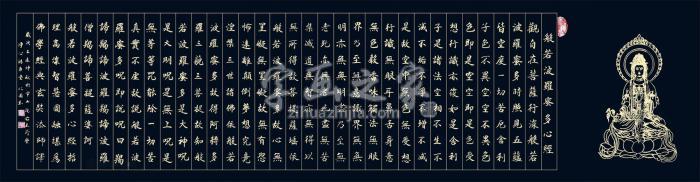 般若波羅蜜多心經
觀自在菩薩行深般若
波羅蜜多時照見五蘊
皆空度一切苦厄舍利
子色不異空空不異色
色即是空空即是色受
想行識亦復如是舍利
子是諸法空相不生不
滅不垢不淨不增不減
是故空中無色無受想
行識無眼耳鼻舌身意
無色聲香味觸法無眼
界乃至無意識界無無
明亦無無明盡乃至無
老死亦無老死盡無苦
集滅道無智亦無得以
無所得故菩提薩埵依
般若波羅蜜多故心無
罣礙無罣礙故無有恐
怖遠離顛倒夢想究竟
涅槃三世諸佛依般若
波羅蜜多故得阿耨多
羅三藐三菩提故知般
若波羅蜜多是大神咒
是大明咒是無上咒是
無等等咒能除一切苦
真實不虛故說般若波
羅蜜多咒即說咒曰揭
諦揭諦波羅揭諦波羅
僧揭諦菩提薩婆訶
般若波羅蜜多心經指
理高深智慧圓融攝為
佛學經典玄奘法師譯
zihuazhijia.com